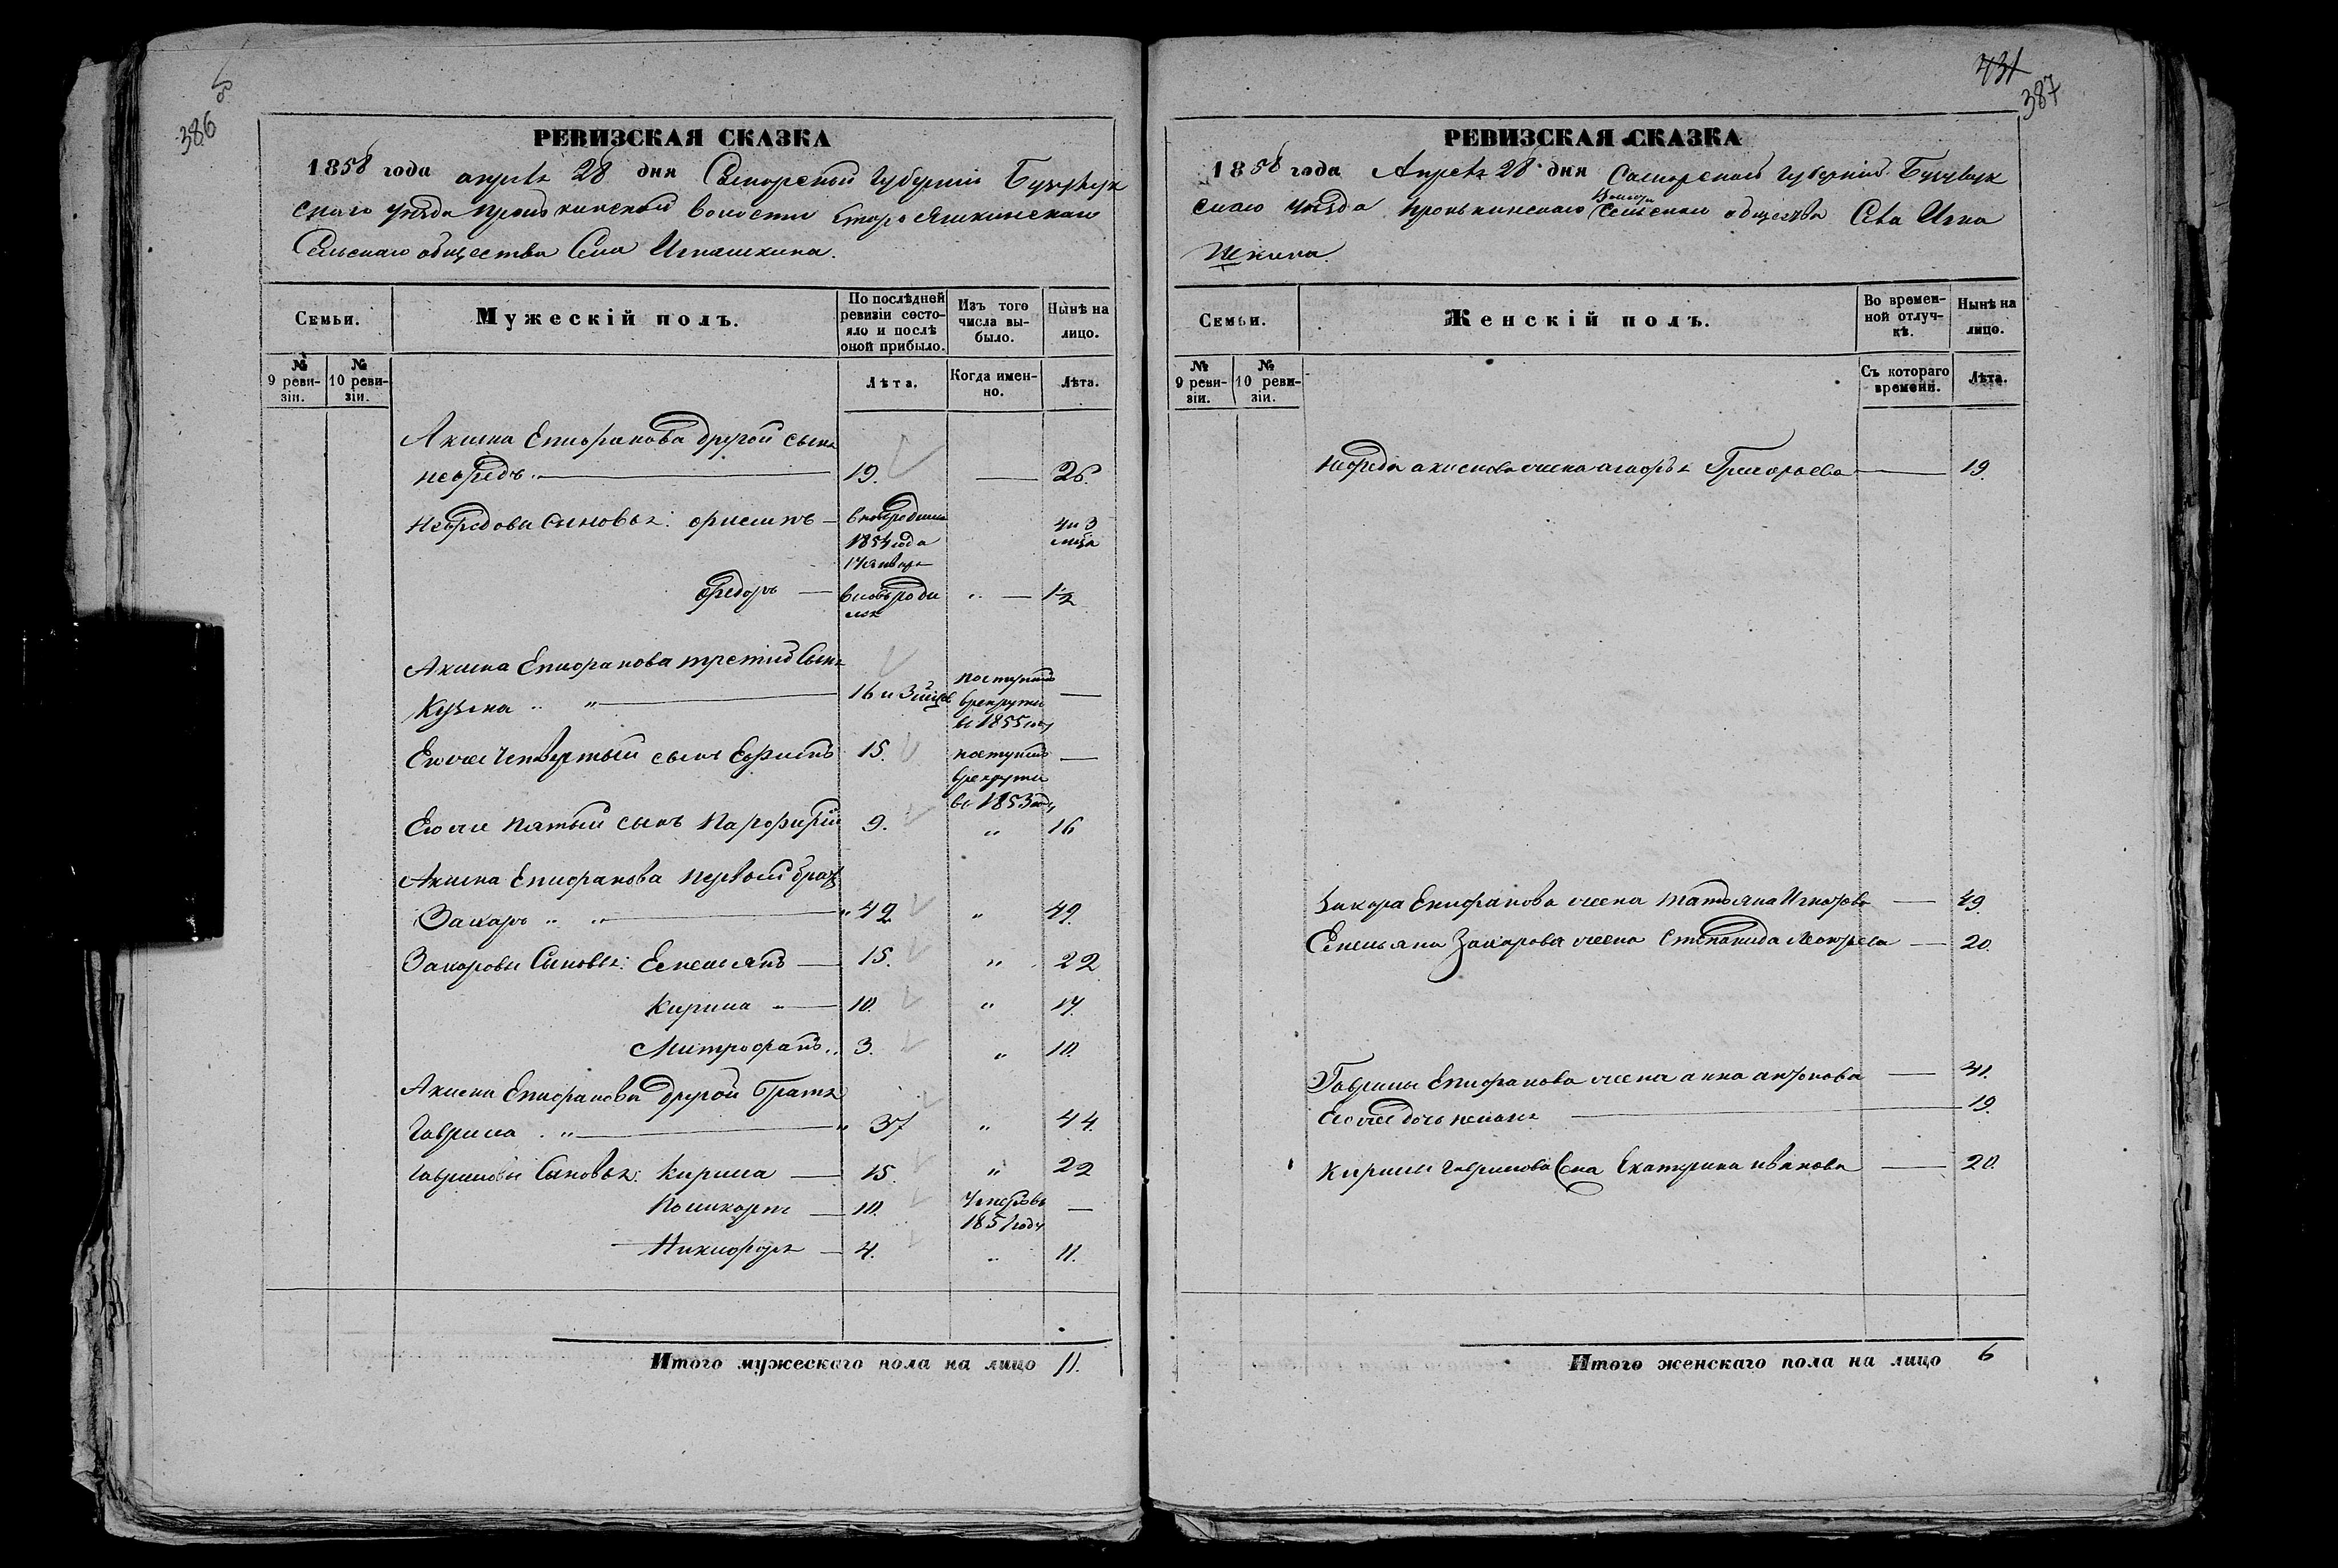 386
РЕВИЗСКАЯ СКАЗКА
1858 года апреля 28 дня Самарской Губернии Бузулук
скаго уезда Пронькинской волости Старо Яшкинскаго
Сельскаго общества Села Игнашкина.
Семьи.
Мужескій полъ.
По послѣдней ревизіи состояло и послѣ оной прибыло.
Изъ того числа выбыло.
Нынѣ на лицо.
№ 9 ревизіи.
№ 10 ревизіи.
Лѣта.
Когда именно.
Лѣта.
Акима Епифанова другой сынъ
Нефедъ. 19. 26.
Нефедовы Сыновья:
1854 года
4 и 3
Федоръ 1½
Акима Епифанова третий Сынъ
Кузма 16 и 3 поступилъ
врекруты
в 1855 году
Его же Четвертый сынъ Ефимъ 15. поступилъ
врекруты
в 1853 году
Его же пятый сынъ Парфирий 9. 16
Акима Епифанова первый братъ
Захаръ 42 49.
Захаровы Сыновья: Емельянъ 15. 22
Кирила 10. 17.
Митрофанъ 3. 10.
Акима Епифанова другой братъ
Гаврила 37 44.
Гавриловы Сыновья: Кирила 15. 22
Поликарпъ 10. Умеръ въ
1851 году
Никифоръ 4. 11.
Итого мужескаго пола на лицо 11.
431
387
РЕВИЗСКАЯ СКАЗКА
1858 года Апреля 28 дня Самарской Губернии Бузулук
скаго уезда Пронькинскаго Сельскаго общества Села Игна
шкина.
Семьи.
Женскій полъ.
Во временной отлучкѣ.
Нынѣ на лицо.
№ 9 ревизіи.
№ 10 ревизіи.
Съ котораго времени.
Лѣта.
Нефеда Акимова жена Григорьева 19.
Захара Епифанова жена Татьяна 49.
Емельяна Захарова жена Степанида 20.
Гаврилы Епифанова жена анна 41.
Его же дочь 19.
Кирилы Гаврилова Жена Екатерина иванова 20.
Итого женскаго пола на лицо 6